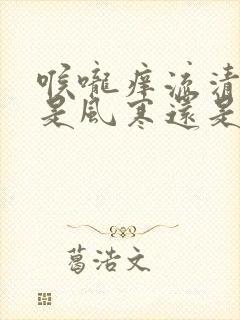 喉嚨癢流清
是風寒還是
葛浩文